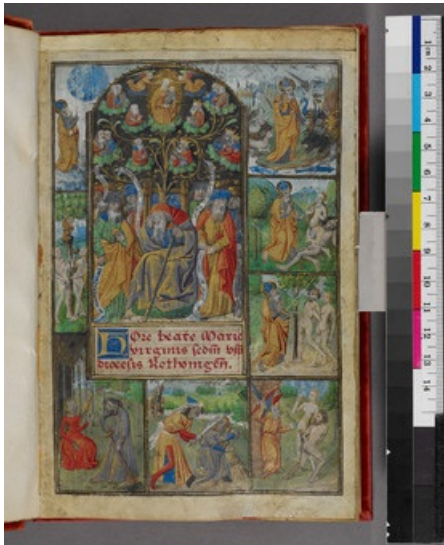 HOre beate Marie
virginis sedm vsu
diocesis
1
2
3
4
5
6
7
8
9
10
11
12
13
14